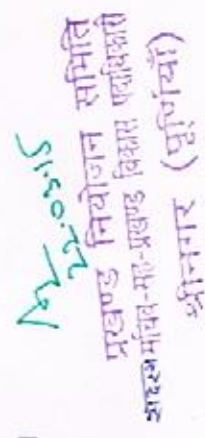 22.05.15
प्रखण्ड नियोजन समिति
सचिव-सह-प्रखण्ड विकास पदाधिकारी
श्रीनगर (पूर्णियाँ)